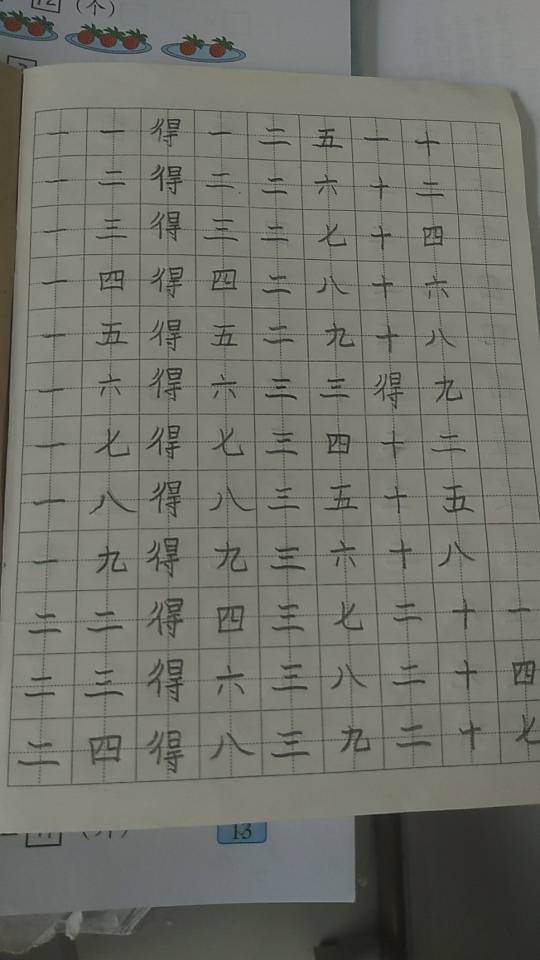 12（个）
一一得一二五一十
一二得二二六十二
一三得三二七十四
一四得四二八十六
一五得五二九十八
一六得六三三得九
一七得七三四十二
一八得八三五十五
一九得九三六十八
二二得四三七二十一
二三得六三八二十四
二四得八三九二十七
13